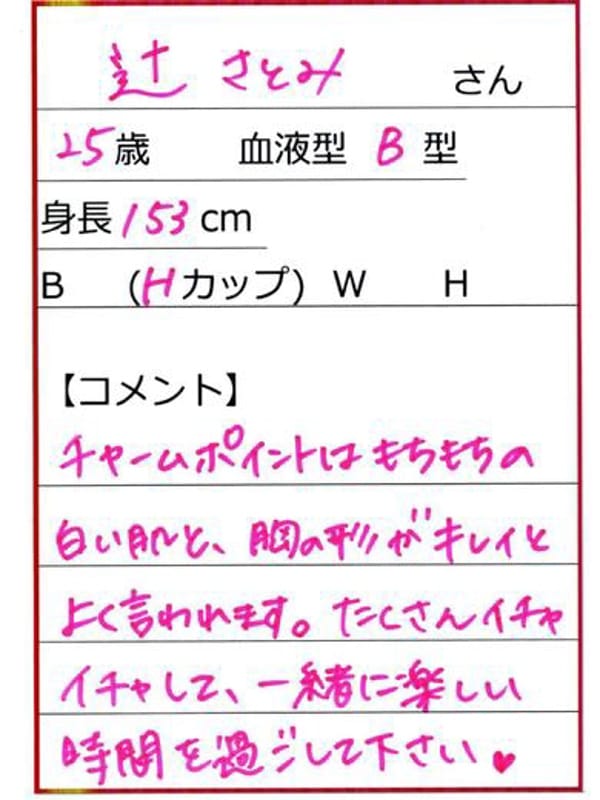 辻 さとみ さん
25歳 血液型 B 型
身長153cm
B (Hカップ) W H
【コメント】
チャームポイントはもちもちの
白い肌と、胸の形がキレイと
よく言われます。たくさんイチャ
イチャして、一緒に楽しい
時間を過ごして下さい♥